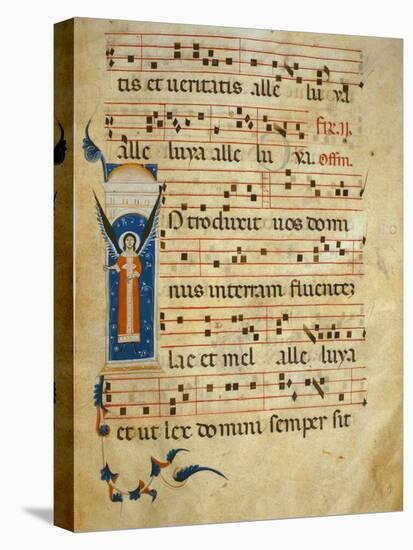 tis et ueritatis alle lu ya
alle luya alle lu ya. Fr. ij.
Offm̄.
Introduxit uos domi
nus in terram fluentez
lac et mel alle luya
et ut lex domini semper sit